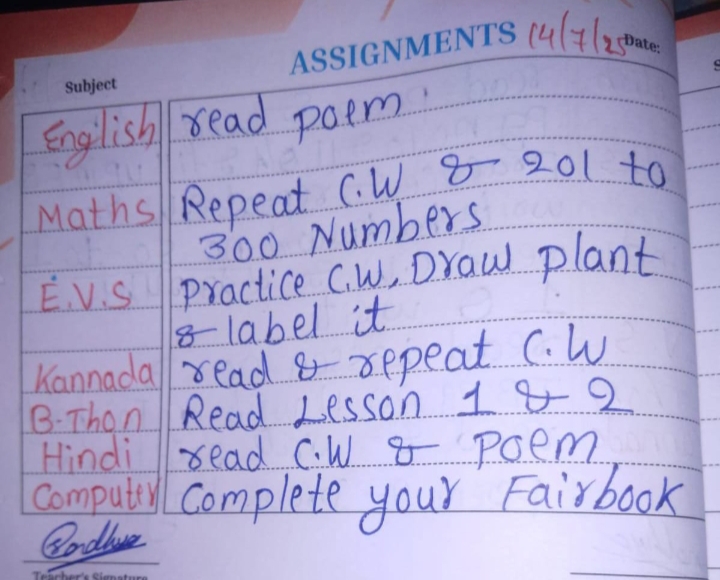 ASSIGNMENTS 14/7/25 Date:
Subject
English read poem
Maths Repeat C.W & 201 to
300 Numbers
E.V.S Practice C.W, Draw plant
& label it
Kannada read & repeat C.W
B-Thon Read Lesson 1 & 2
Hindi read C.W & Poem
Computer Complete your Fairbook
Teacher's Signature